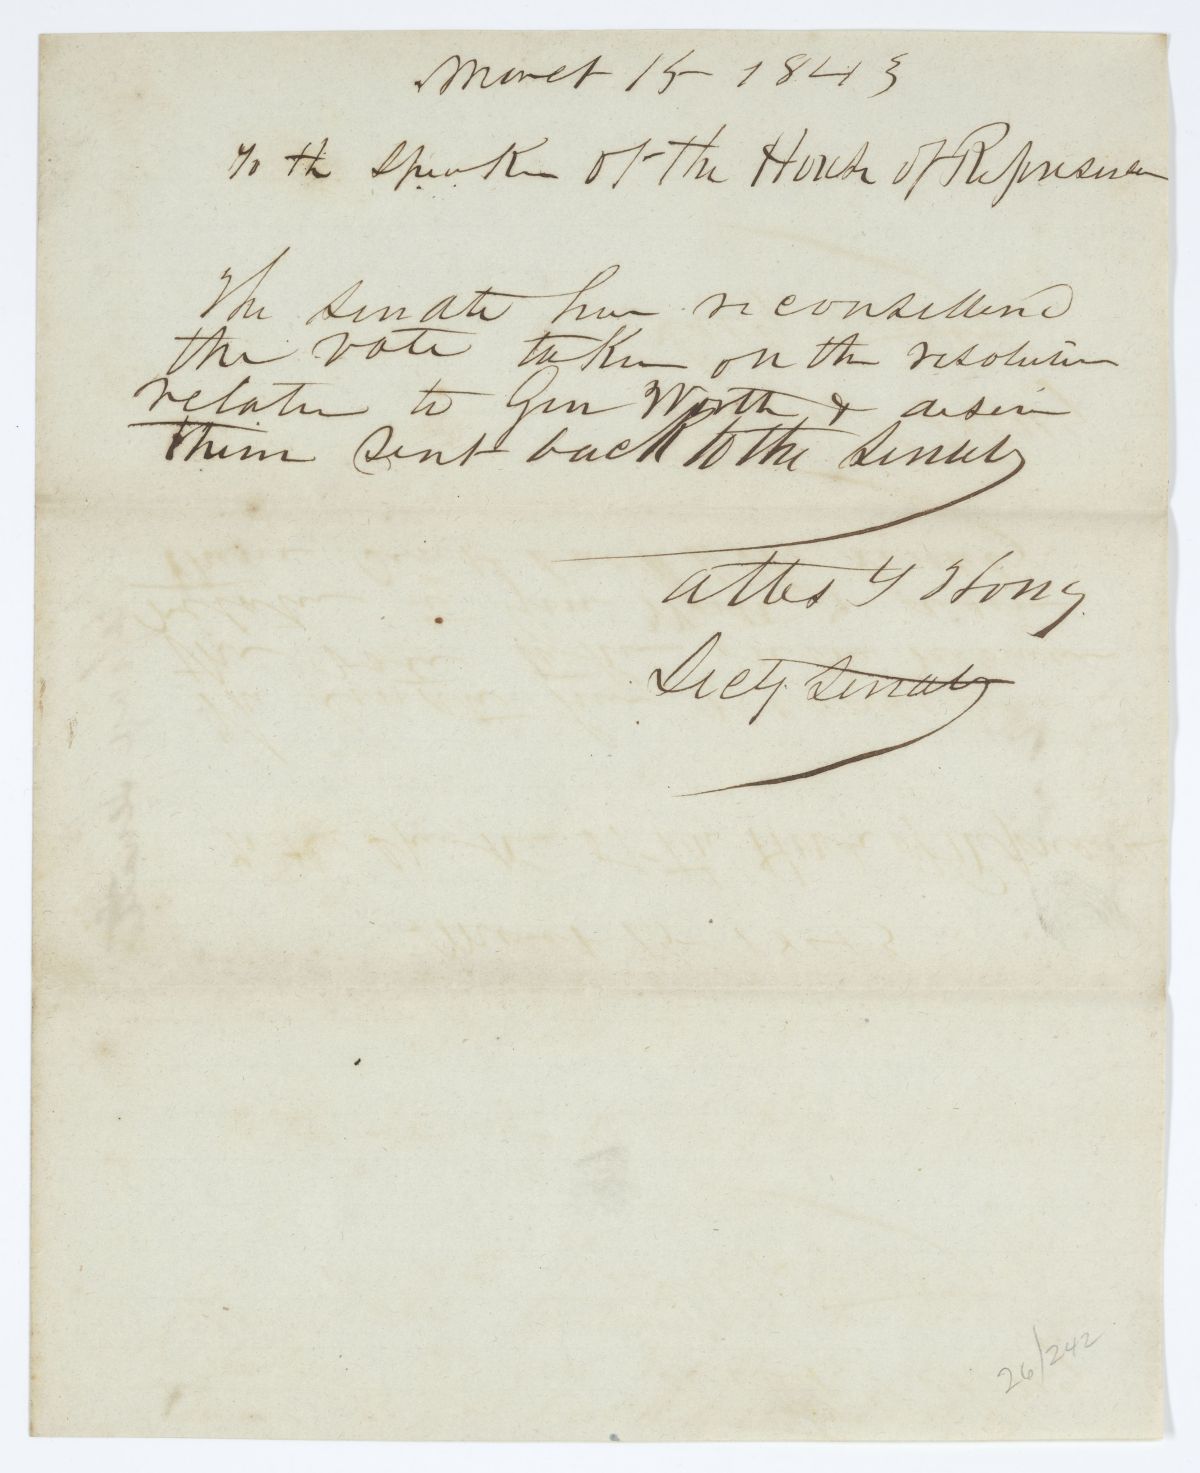 March 15 1843
To the Speaker of the House of Represen
The Senate have reconsidered
the vote taken on the resolution
relative to Gen Worth & desire
them sent back to the Senate
attes T
Secty Senate
26/242